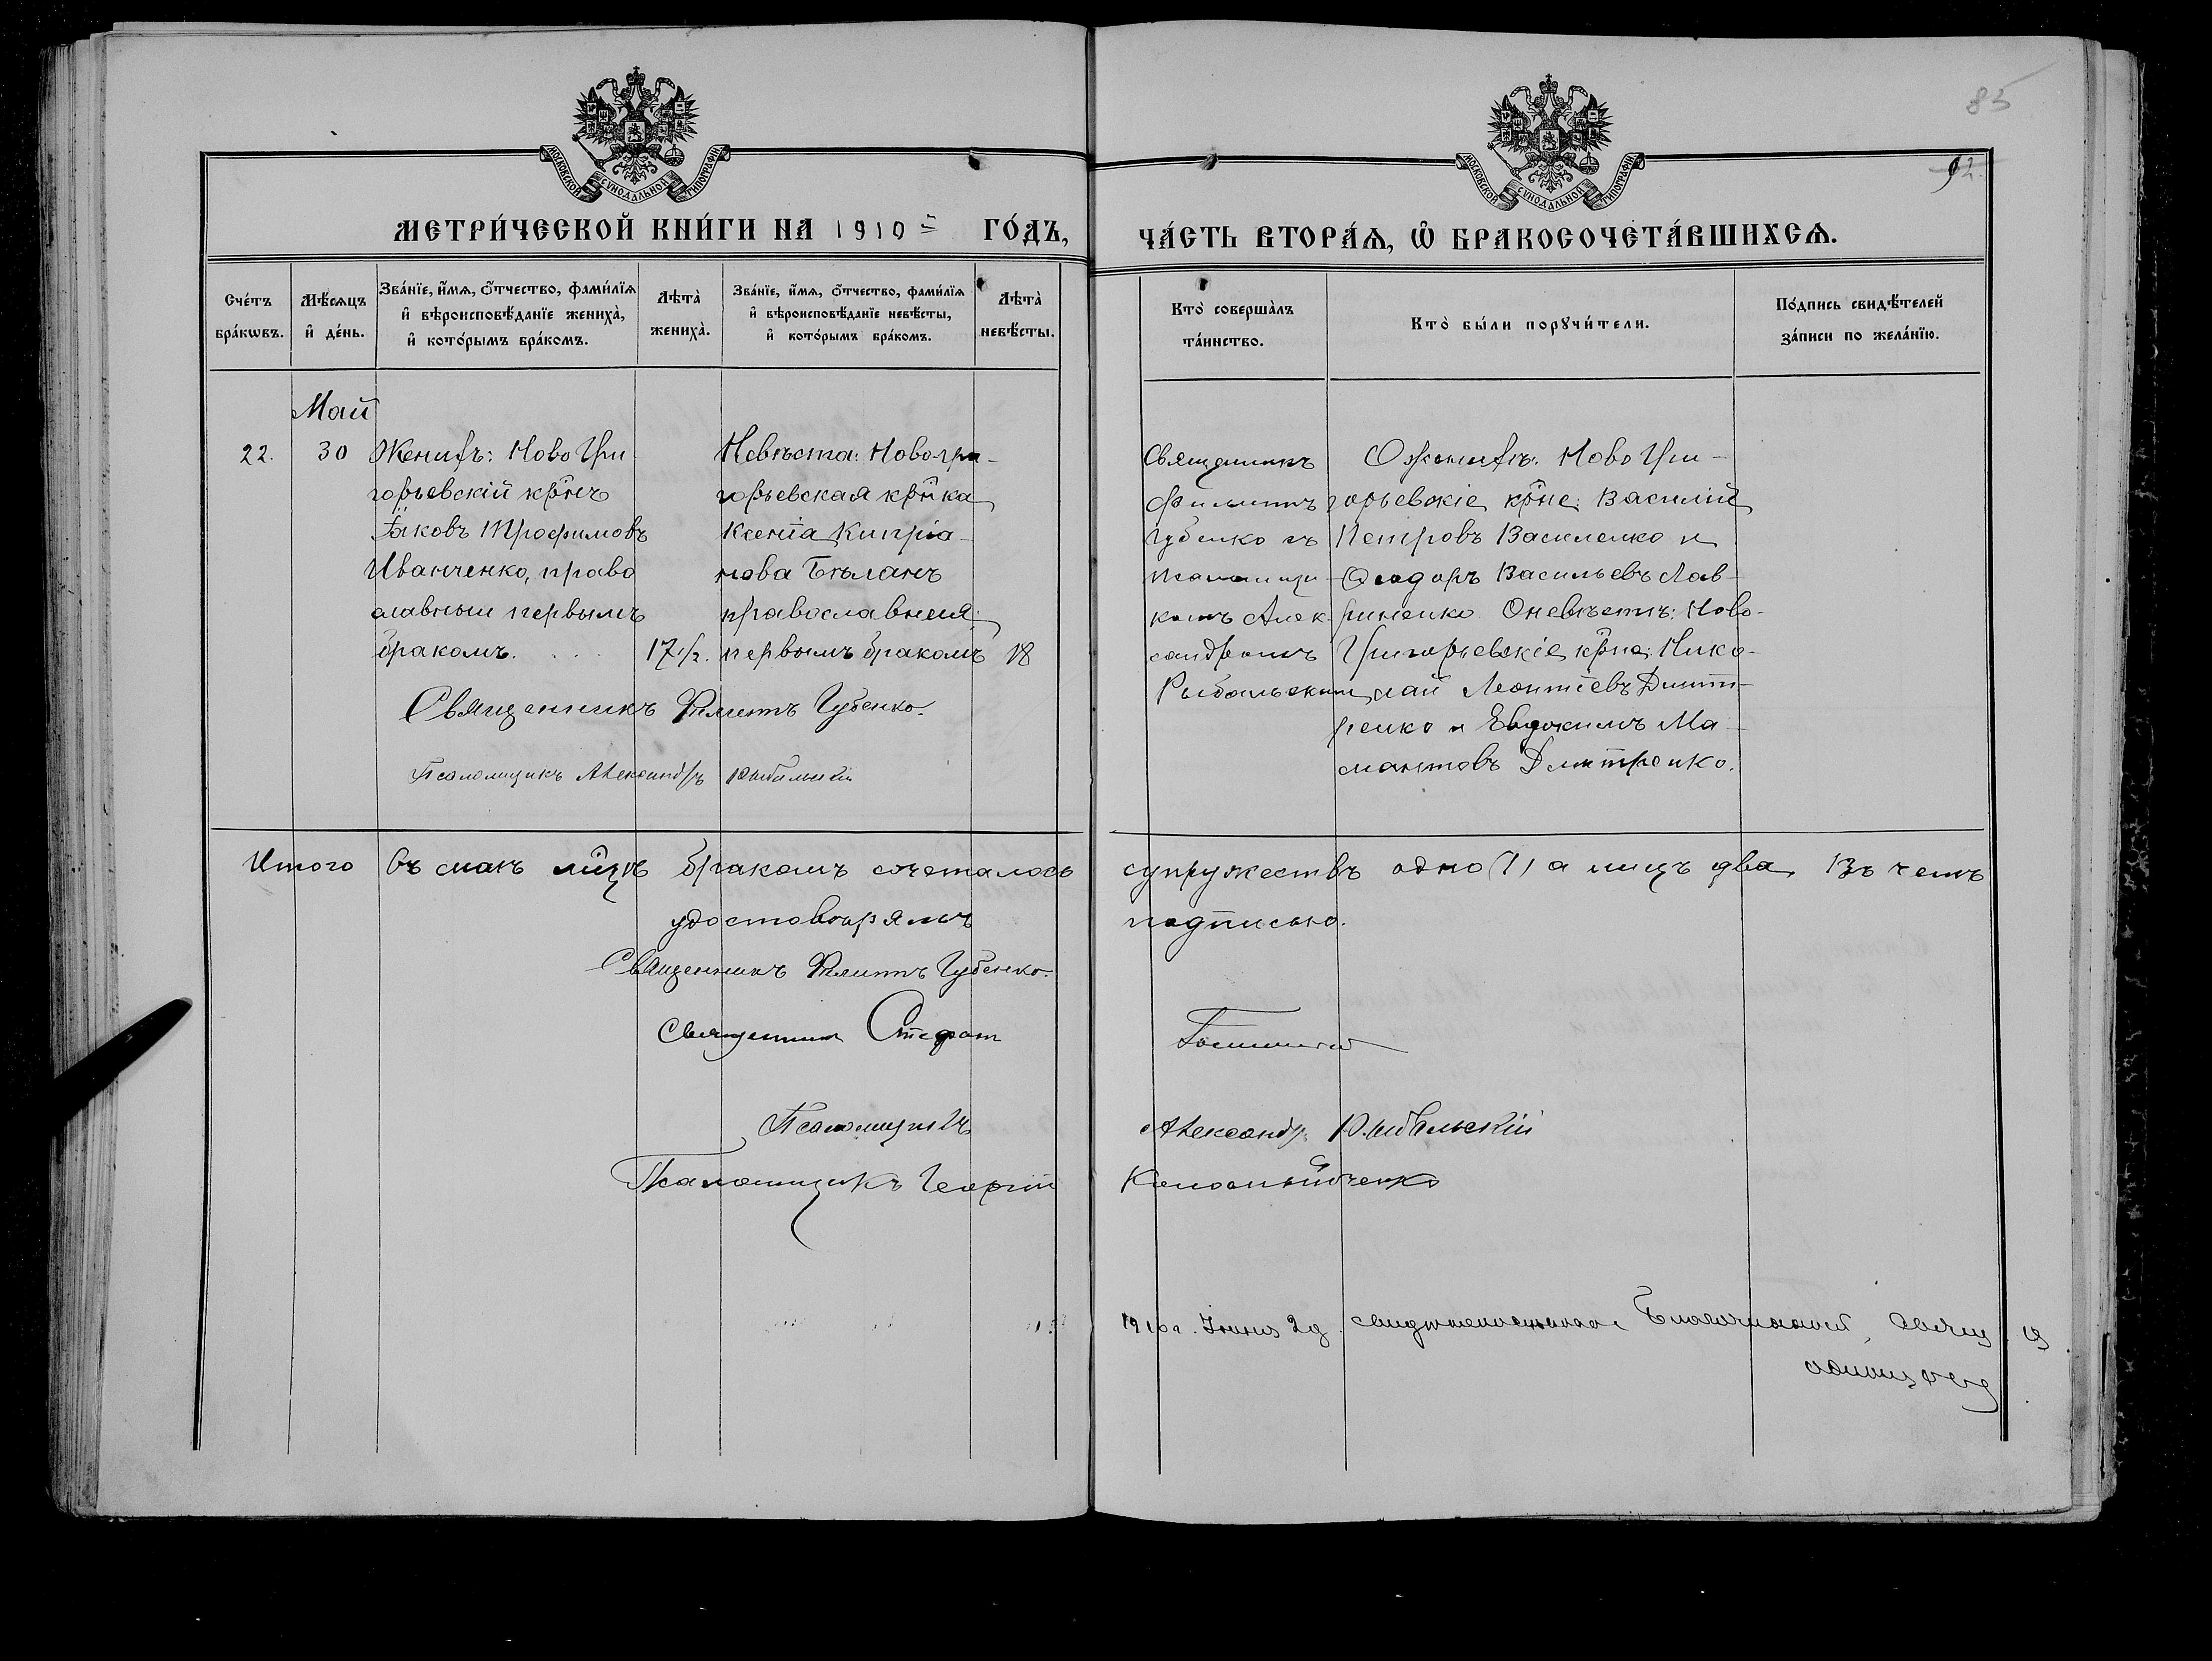 85
92.
МОСКОВСКОЙ СѴНОДАЛЬНОЙ ТИПОГРАФІИ
МОСКОВСКОЙ СѴНОДАЛЬНОЙ ТИПОГРАФІИ
МЕТРИ́ЧЕСКОЙ КНИ́ГИ НА 1910й ГО́ДЪ,
ЧА́СТЬ ВТОРА́Ѧ, Ѡ҆ БРАКОСОЧЕТА́ВШИХСѦ.
Сче́тъ
бра́кѡвъ.
Мѣ́сяцъ
и҆ де́нь.
Зва́нїе, и҆́мѧ, ѻ҆́тчество, фами́лїѧ
и҆ вѣроисповѣ́данїе жениха̀,
и҆ кото́рымъ бра́комъ.
Лѣта̀
жениха̀.
Зва́нїе, и҆́мѧ, ѻ҆́тчество, фами́лїѧ
и҆ вѣроисповѣ́данїе невѣ́сты,
и҆ кото́рымъ бра́комъ.
Лѣта̀
невѣ́сты.
Кто̀ соверша̀лъ
та́инство.
Кто̀ бы́ли порꙋчи́тели.
По́дпись свидѣ́телей
за́писи по жела́нїю.
Май
22.
30
Женихъ: Ново Гри-
горьевскій кр̃нъ
Іаковъ Трофимовъ
Иванченко, право
славный первымъ
бракомъ. . . .
17½.
Невѣста: Ново-гри-
горьевская кр̃нка
Ксенія Кипріа-
нова Бѣланъ
православная,
первымъ бракомъ
18
Священникъ
Филиппъ
Губенко съ
псаломщи-
комъ Алек-
сандромъ
Рыбальскимъ
О женихѣ: Ново Гри-
горьевскіе кр̃не: Василій
Петровъ Василенко и
Ѳеодоръ Васильевъ Лав-
риненко. О невѣстѣ: Ново-
Григорьевскіе кр̃не: Нико-
лай Леонтіевъ Дмит-
ренко и Евдокимъ Ма-
мантовъ Дмитренко.
Священникъ Филиппъ Губенко.
Псаломщикъ Александръ Рыбальскій
Итого въ маѣ мц̃ѣ бракомъ сочеталось супружествъ одно (1) а лицъ два, въ чемъ
удостовѣряемъ подписью.
Священникъ Филиппъ Губенко.
Священникъ Стефан
Псаломщикъ Александръ Рыбальскій
Псаломщикъ Георгій
1910 г. Іюня 2 д. свидѣтельствовалъ Благочинный, Свящ.